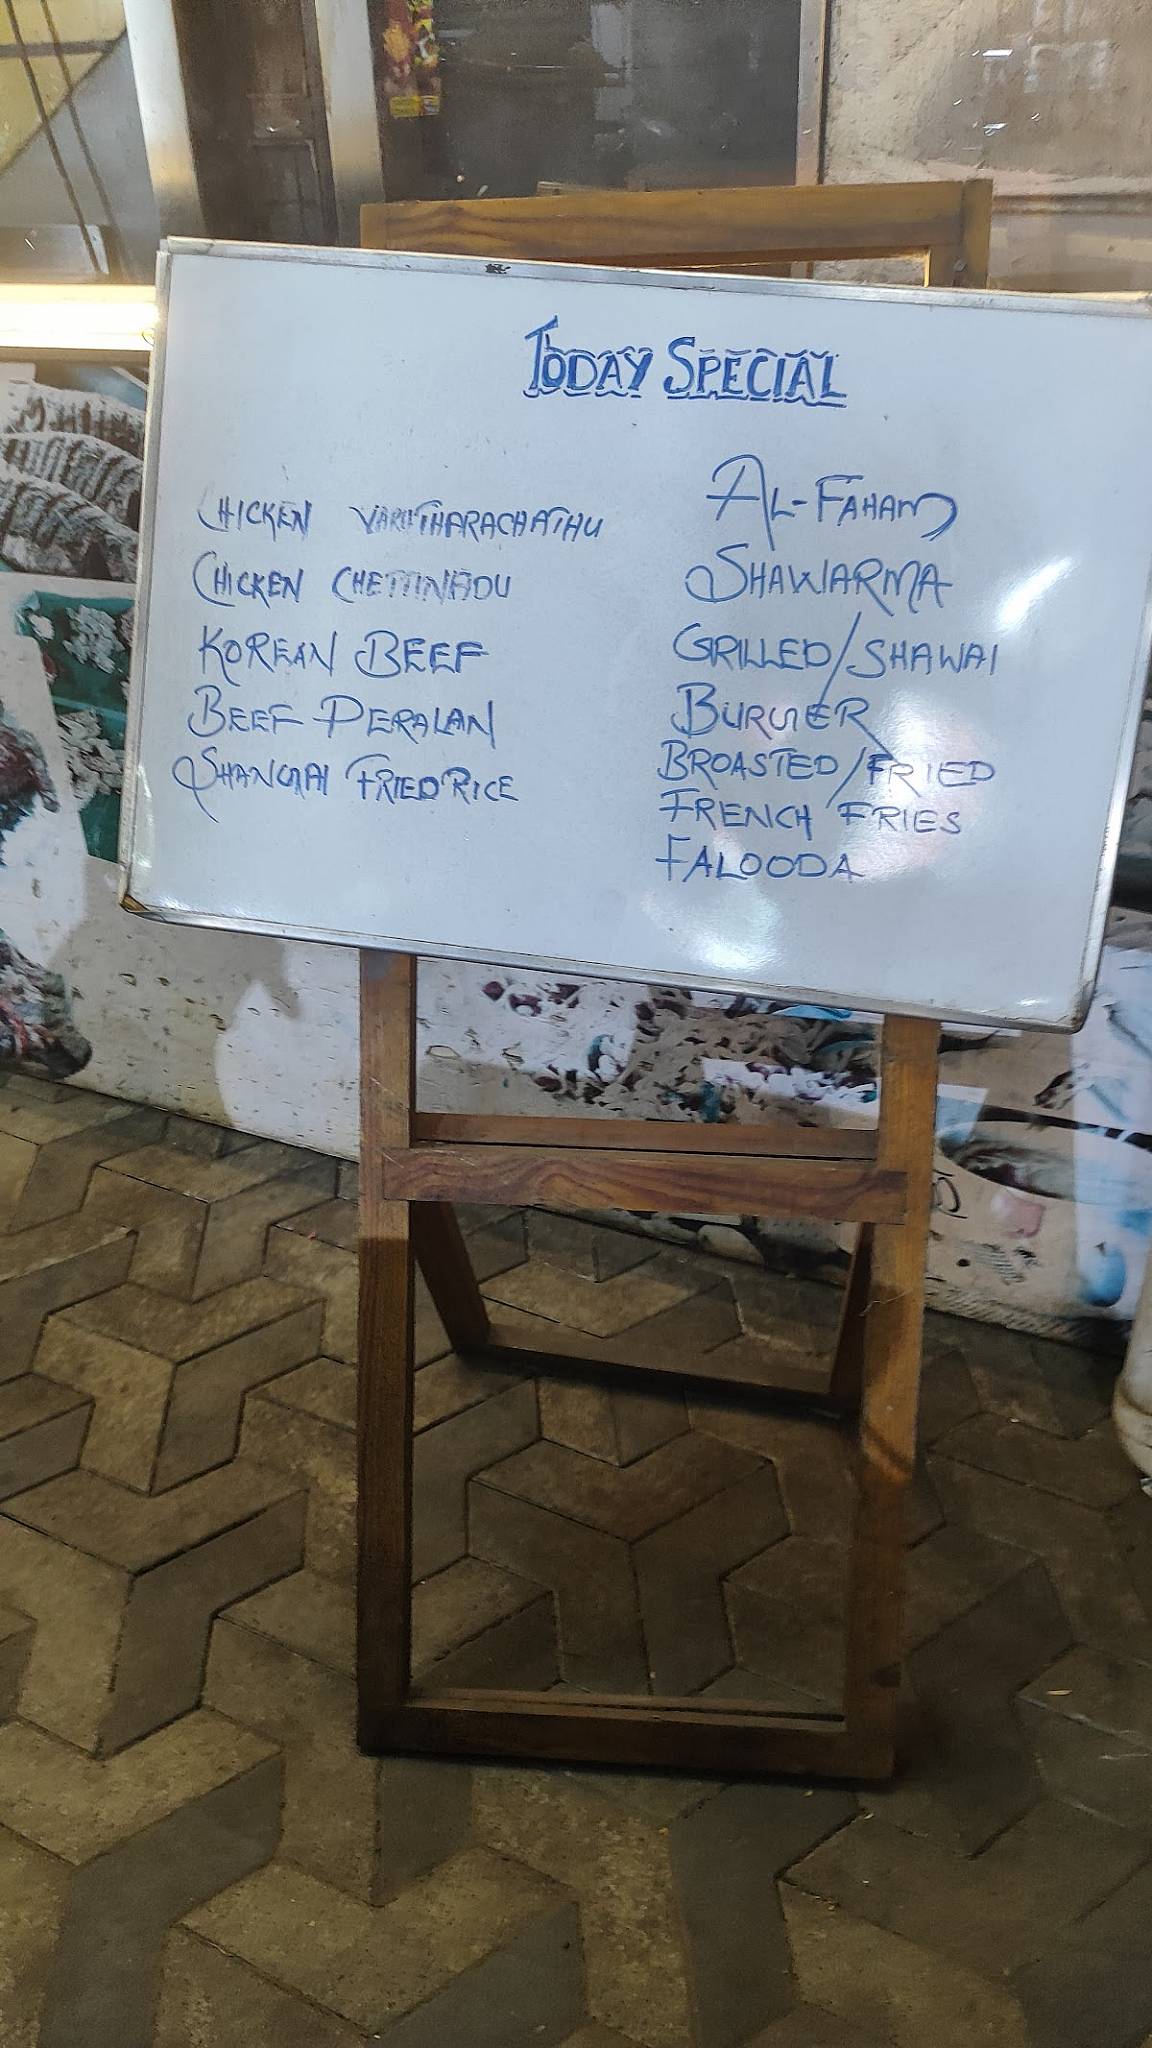 TODAY SPECIAL
CHICKEN VARUTHARACHATHU
CHICKEN CHETTINADU
KOREAN BEEF
BEEF PERALAN
SHANGAI FRIED RICE
AL-FAHAM
SHAWARMA
GRILLED/SHAWAI
BURGER
BROASTED/FRIED
FRENCH FRIES
FALOODA